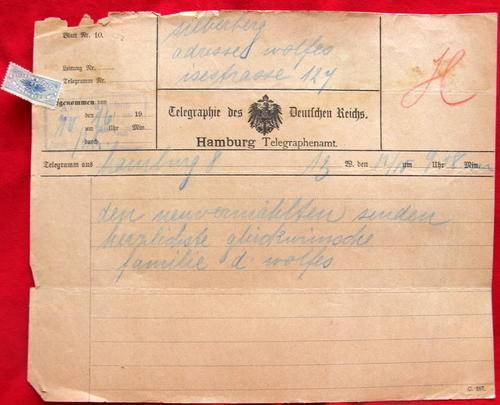 Blatt Nr. 10.
silberberg
adresse wolfes
isestrasse 124
Leitung Nr.
Telegramm Nr.
genommen von
den 19
um Uhr Min.
durch
Telegraphie des Deutschen Reichs.
Hamburg Telegraphenamt.
Telegramm aus hamburg 8 13 W. den um 9 Uhr Min.
den neuvermählten senden
herzlichste glückwünsche
familie d wolfes
C. 187.